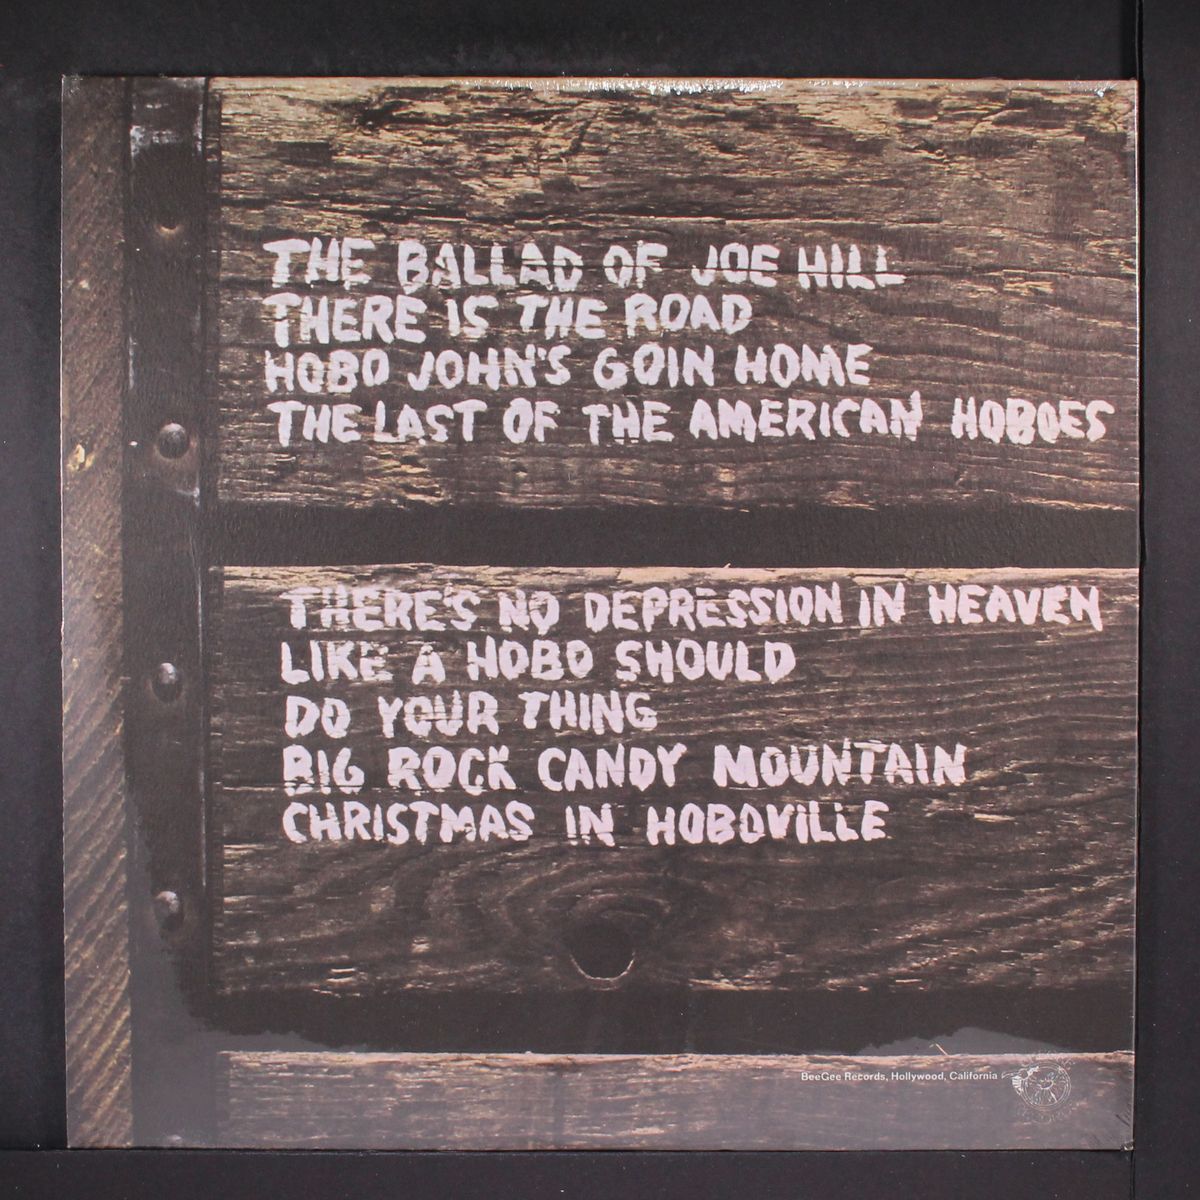 THE BALLAD OF JOE HILL
THERE IS THE ROAD
HOBO JOHN'S GOIN HOME
THE LAST OF THE AMERICAN HOBOES
THERE'S NO DEPRESSION IN HEAVEN
LIKE A HOBO SHOULD
DO YOUR THING
BIG ROCK CANDY MOUNTAIN
CHRISTMAS IN HOBOVILLE
BeeGee Records, Hollywood, California